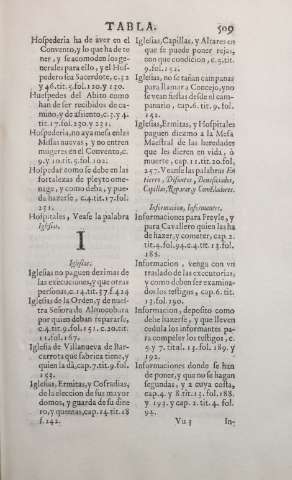 TABLA. 509
Hospederia ha de auer en el
Conuento, y lo que ha de te
ner, y se acomoden los ge-
nerales para ello, y el Hos-
pedero sea Sacerdote, c.32
y 46.tit.5.fol.120.y 130.
Huespedes del Abito como
han de ser recibidos de ca-
mino, y de assiento, c.35 4.
tit.17.fol.230.y 231.
Hospederia, no aya mesa en las
Missas nueuas, y no entren
mugeres en el Conuento, c.
9.y 10.tit.5.fol.102.
Hospedar como se debe en las
fortalezas de pleyto ome-
nage, y como deba, y pue-
da hazerse, c.4.tit.17.fol.
231.
Hospitales, Vease la palabra
Iglesias.
I
Iglesias.
Iglesias no paguen dezimas de
las execuciones, y que otras
personas, c.14.tit.37.f.424
Iglesias de la Orden, y de nues-
tra Señora de Almocobara
por quien deban repararse,
c.4.tit.9.fol.151. c.20.tit.
11.fol.167.
Iglesia de Villanueva de Bar-
carrota que fabrica tiene, y
quien la dà, cap.7.tit.9.fol.
153.
Iglesias, Ermitas, y Cofradias,
de la eleccion de sus mayor
domos, y guarda de su dine
ro, y quentas, cap.14.tit.18
f.242.
Iglesias, Capillas, y Altares en
que se puede poner rejas,
con que condicion, c.5.tit.
9.fol.152.
Iglesias, no se tañan campanas
para llamar a Concejo, y no
se vean fiestas desde el cam-
panario, cap.6. tit. 9. fol.
142.
Iglesias, Ermitas, y Hospitales
paguen diezmo a la Mesa
Maestral de las heredades
que les dieren en vida, ò
muerte, cap. 11. tit. 20. fol,
247. Vease las palabras En
tierros, Difuntos, Donestados,
Capillas, Reparar, y
Informacion, Informantes.
Informaciones para Freyle, y
para Cavallero quien las ha
de hazer, y cometer, cap. 2.
tit.4.fol.94.c.4.tit.13.fol.
188.
Informacion, venga con vn
traslado de las executorias,
y como deben ser examina-
dos los testigos, cap. 6. tit.
13.fol.190.
Informacion, deposito como
debe hazerse, y que lleuen
cedula los informantes pa-
ra compeler los testigos, c.
5 y 7. tital. 13. fol. 189. y
192.
Informaciones donde se han
de poner, y que no se hagan
segundas, y à cuya costa,
cap.4. y 8.tit.13. fol.188.
y 193. y cap. 2. tit. 4. fol.
94.
Vu 3 In-